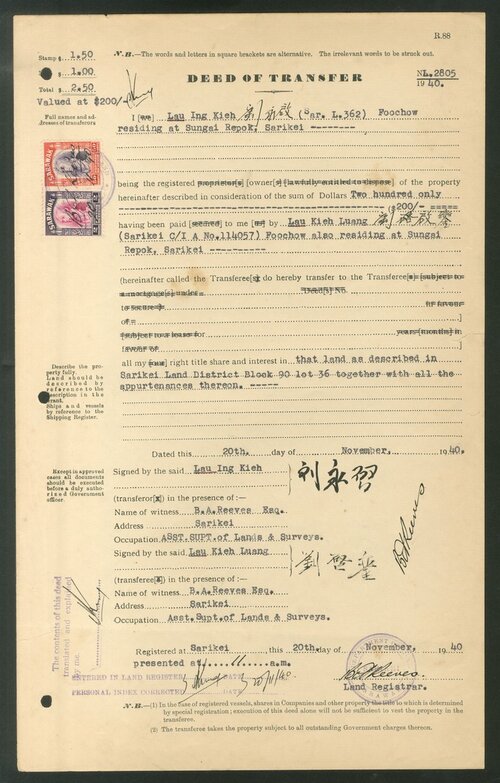 R.88
Stamp $ 1.50
$ 1.00
Total $ 2.50
Valued at $200/-
N.B.—The words and letters in square brackets are alternative. The irrelevant words to be struck out.
DEED OF TRANSFER
NL.2805
1940.
Full names and addresses of transferors
I [we] Lau Ing Kieh (Sar. L.362) Foochow
residing at Sungai Repok, Sarikei --------
SARAWAK
SARAWAK
being the registered proprietor[s] [owner[s] [lawfully entitled to dispose] of the property
hereinafter described in consideration of the sum of Dollars Two hundred only
---------($200/- =====
having been paid [secured] to me [us] by Lau Kieh Luang
(Sarikei C/I A No.114057) Foochow also residing at Sungai
Repok, Sarikei ---------
(hereinafter called the Transferee[s] do hereby transfer to the Transferee[s] [subject to
a mortgage[s] under Deed[s] No
to secure $ in favour
of
[subject to a lease for years (months) in
favour of ]
all my [our] right title share and interest in that land as described in
Sarikei Land District Block 90 lot 36 together with all the
appurtenances thereon. -----
Describe the property fully.
Land should be described by reference to the description in the grant.
Ships and vessels by reference to the Shipping Register.
Dated this 20th. day of November, 1940.
Except in approved cases all documents should be executed before a duly authorized Government officer.
Signed by the said Lau Ing Kieh
(transferor[s] in the presence of:—
Name of witness B.A.Reeves Esq.
Address Sarikei
Occupation ASST.SUPT.of Lands & Surveys.
Signed by the said Lau Kieh Luang
(transferee[s] in the presence of:—
Name of witness B.A.Reeves Esq.
Address Sarikei
Occupation Asst.Supt.of Lands & Surveys.
BAReeves
The contents of this deed
translated and explained
by me.
Registered at Sarikei this 20th. day of November, 1940
presented at 11 a.m.
ENTERED IN LAND REGISTER DATE
PERSONAL INDEX CORRECTED DATE
20/11/40
BAReeves
Land Registrar.
N.B.—(1) In the case of registered vessels, shares in Companies and other property the title to which is determined
by special registration; execution of this deed alone will not be sufficient to vest the property in the
transferee.
(2) The transferee takes the property subject to all outstanding Government charges thereon.